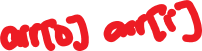 arr[0] arr[r]